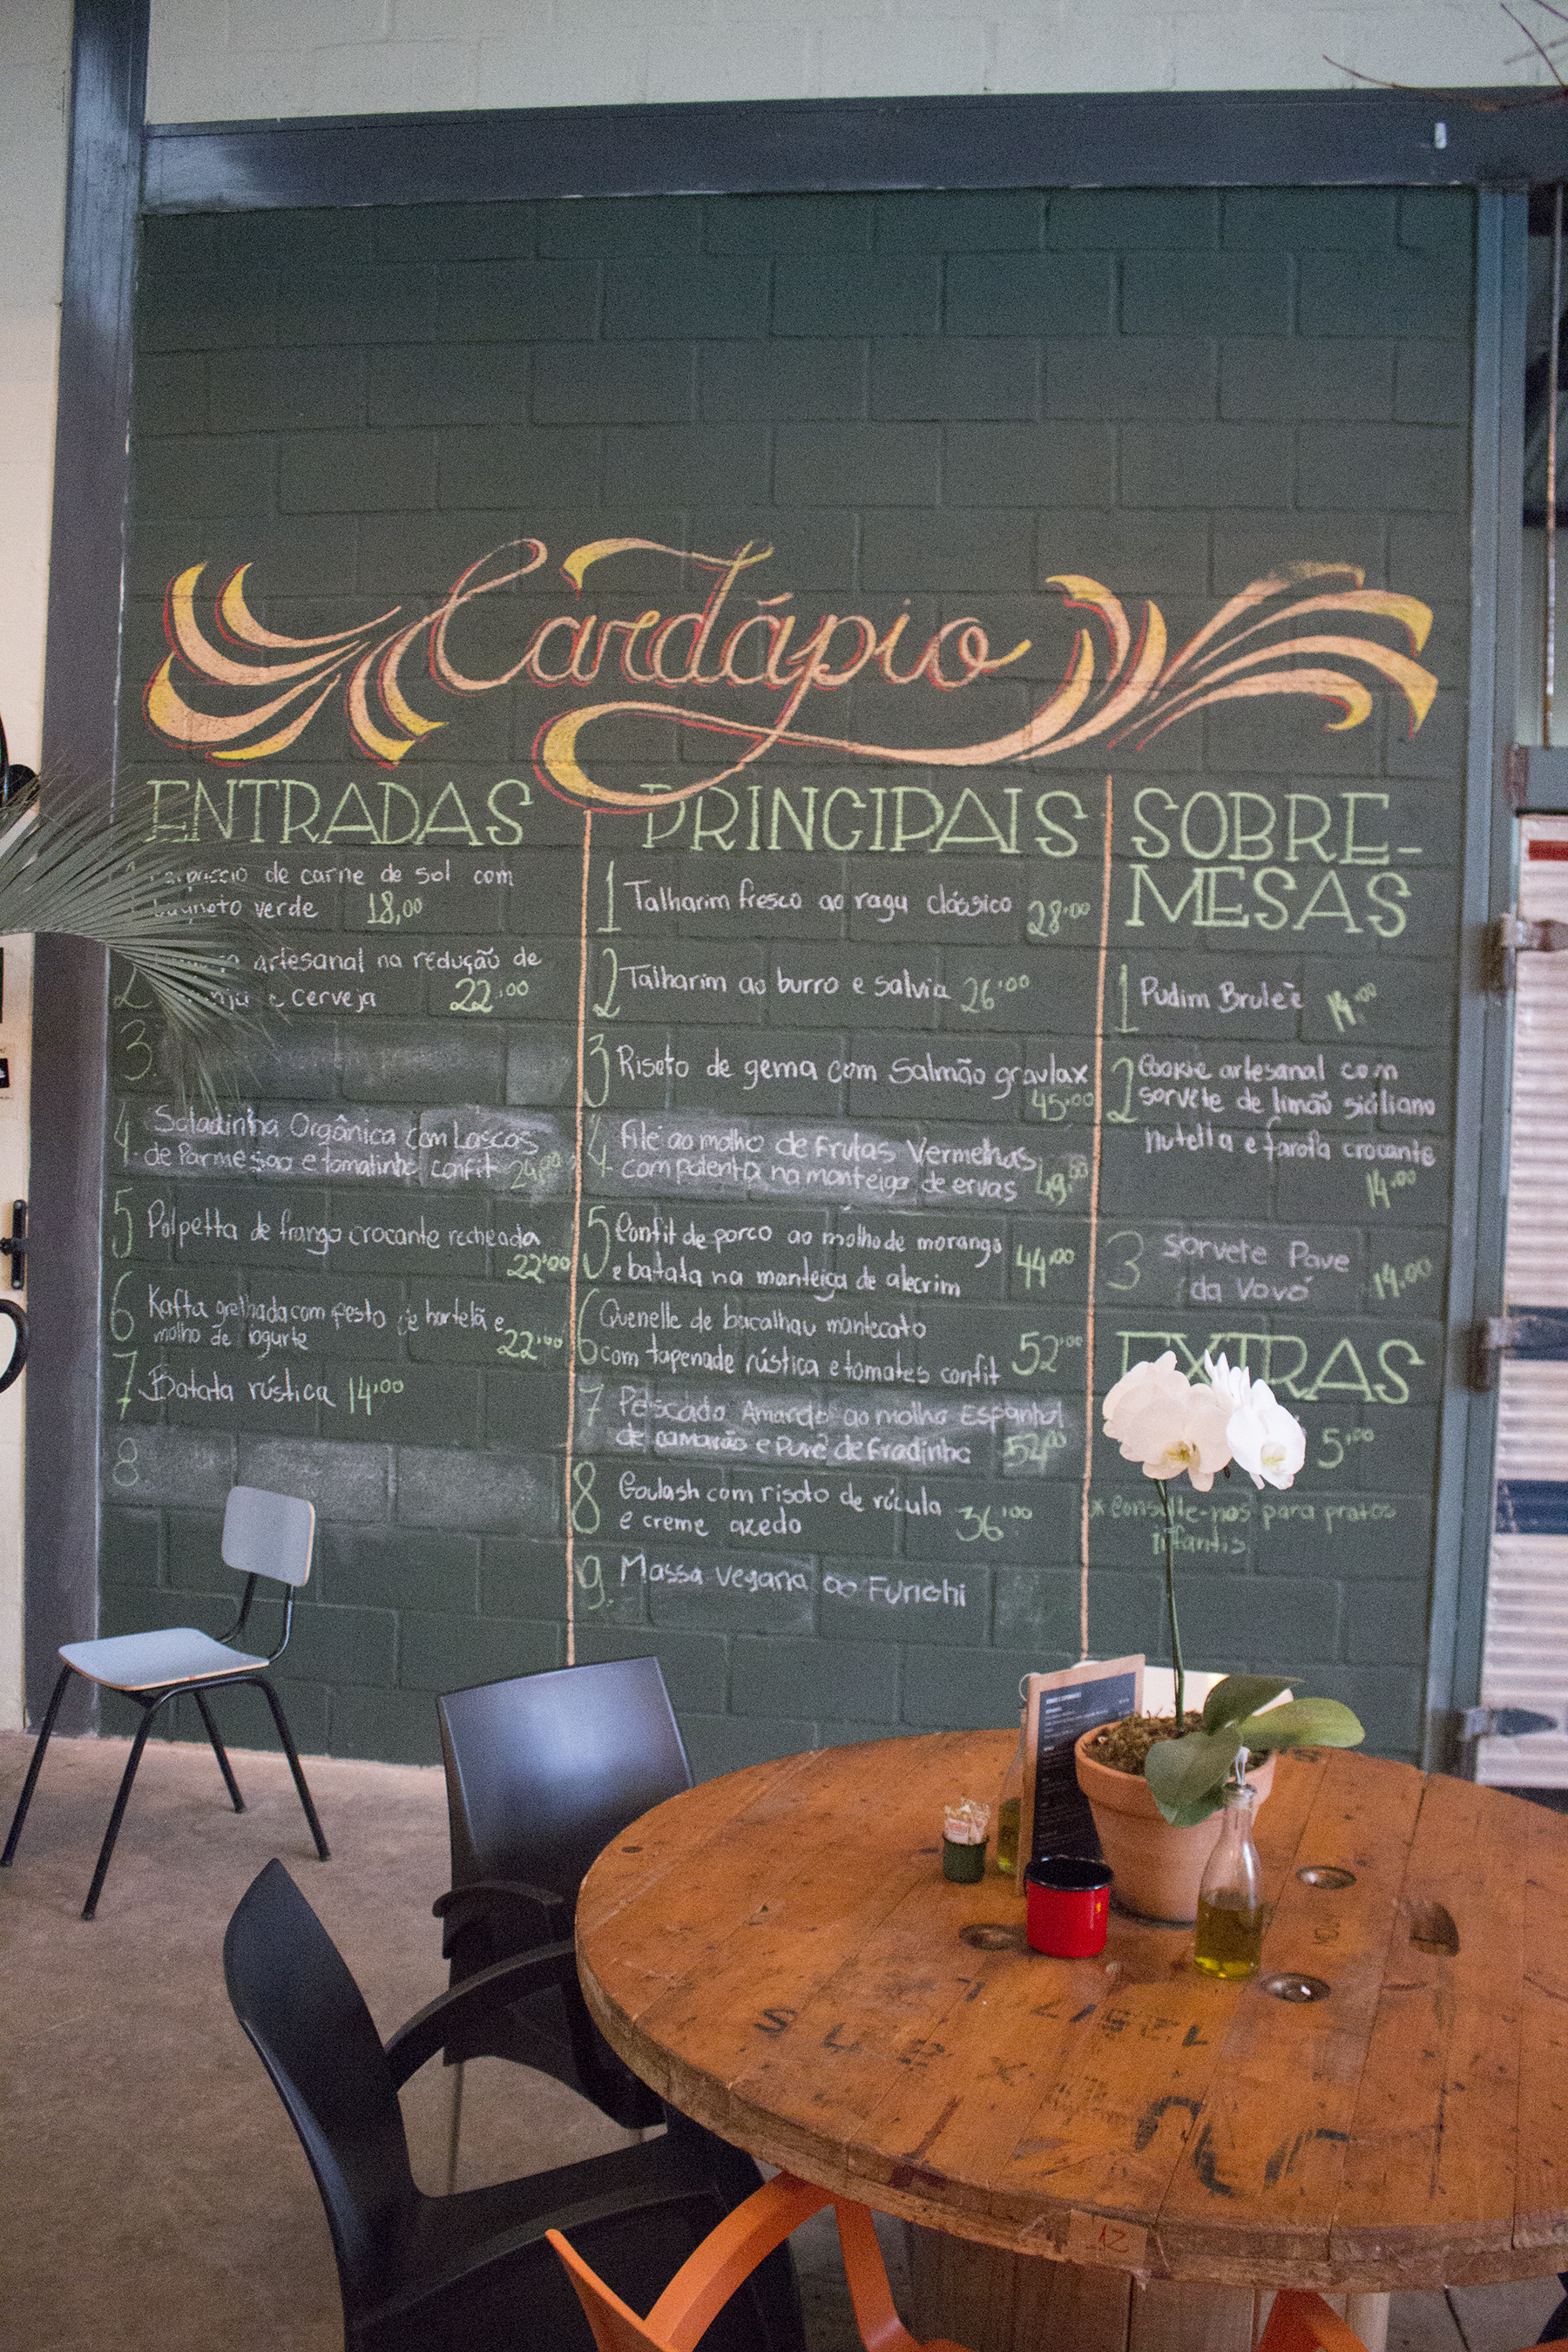 Cardápio
ENTRADAS
de carne de sol com
verde 18,00
2 artesanal na redução de
e cerveja 22,00
3.
4. Saladinha Orgânica com Lascas
de Parmesão e tomatinho confit
5 Polpetta de frango crocante recheada
22,00
6 Kafta grelhada com pesto de hortelã e
molho de iogurte 22,00
7 Batata rústica 14,00
8.
PRINCIPAIS
1 Talharim fresco ao ragu clássico 28,00
2 Talharim ao burro e salvia 26,00
3 Risoto de gema com Salmão gravlax
45,00
4 Filé ao molho de Frutas Vermelhas
com polenta na manteiga de ervas 49,00
5 Confit de porco ao molho de morango
e batata na manteiga de alecrim 44,00
6 Quenelle de bacalhau mantecato
com tapenade rústica e tomates confit 52,00
7 Pescada Amarela ao molho Espanhol
de camarão e Purê de Fradinho
8 Goulash com risoto de rúcula
e creme azedo 36,00
9. Massa vegana ao Funghi
SOBRE-
MESAS
1 Pudim Bruleè 14,00
2 Cookie artesanal com
sorvete de limão siciliano
nutella e farofa crocante
14,00
3 Sorvete Pave
da Vovó 14,00
EXTRAS
5,00
* Consulte-nos para pratos
infantis.
12